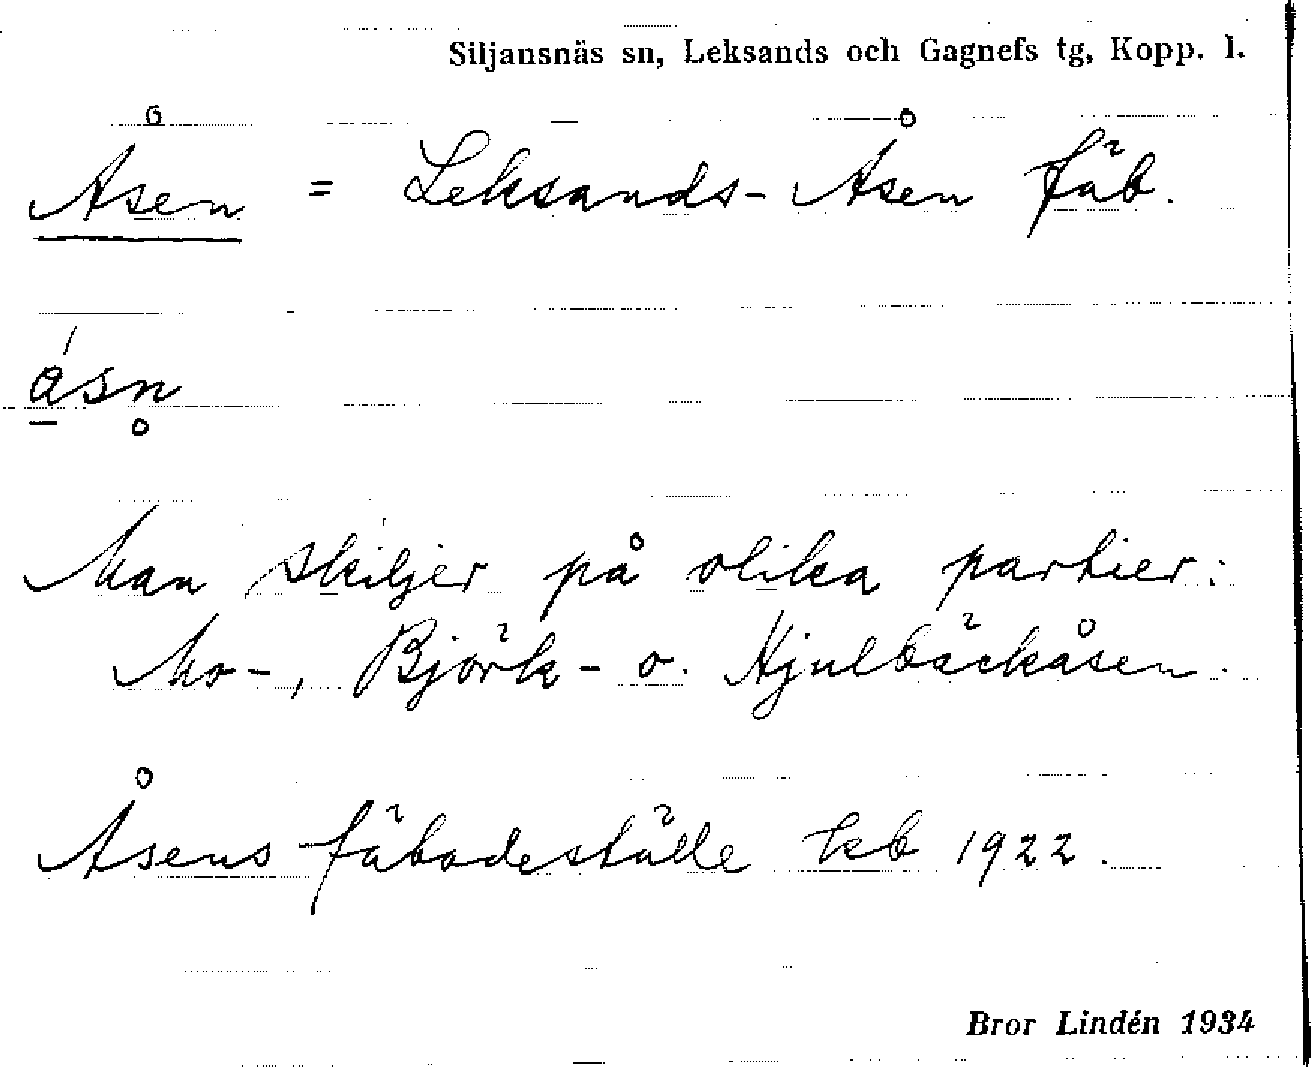 Siljansnäs sn, Leksands och Gagnefs tg, Kopp. l.
Åsen = Leksands-Åsen fäb.
á̱sn̥
Man skiljer på olika partier:
Mo-, Björk- o. Hjulbäckåsen.
Åsens fäbodeställe kb 1922.
Bror Lindén 1934